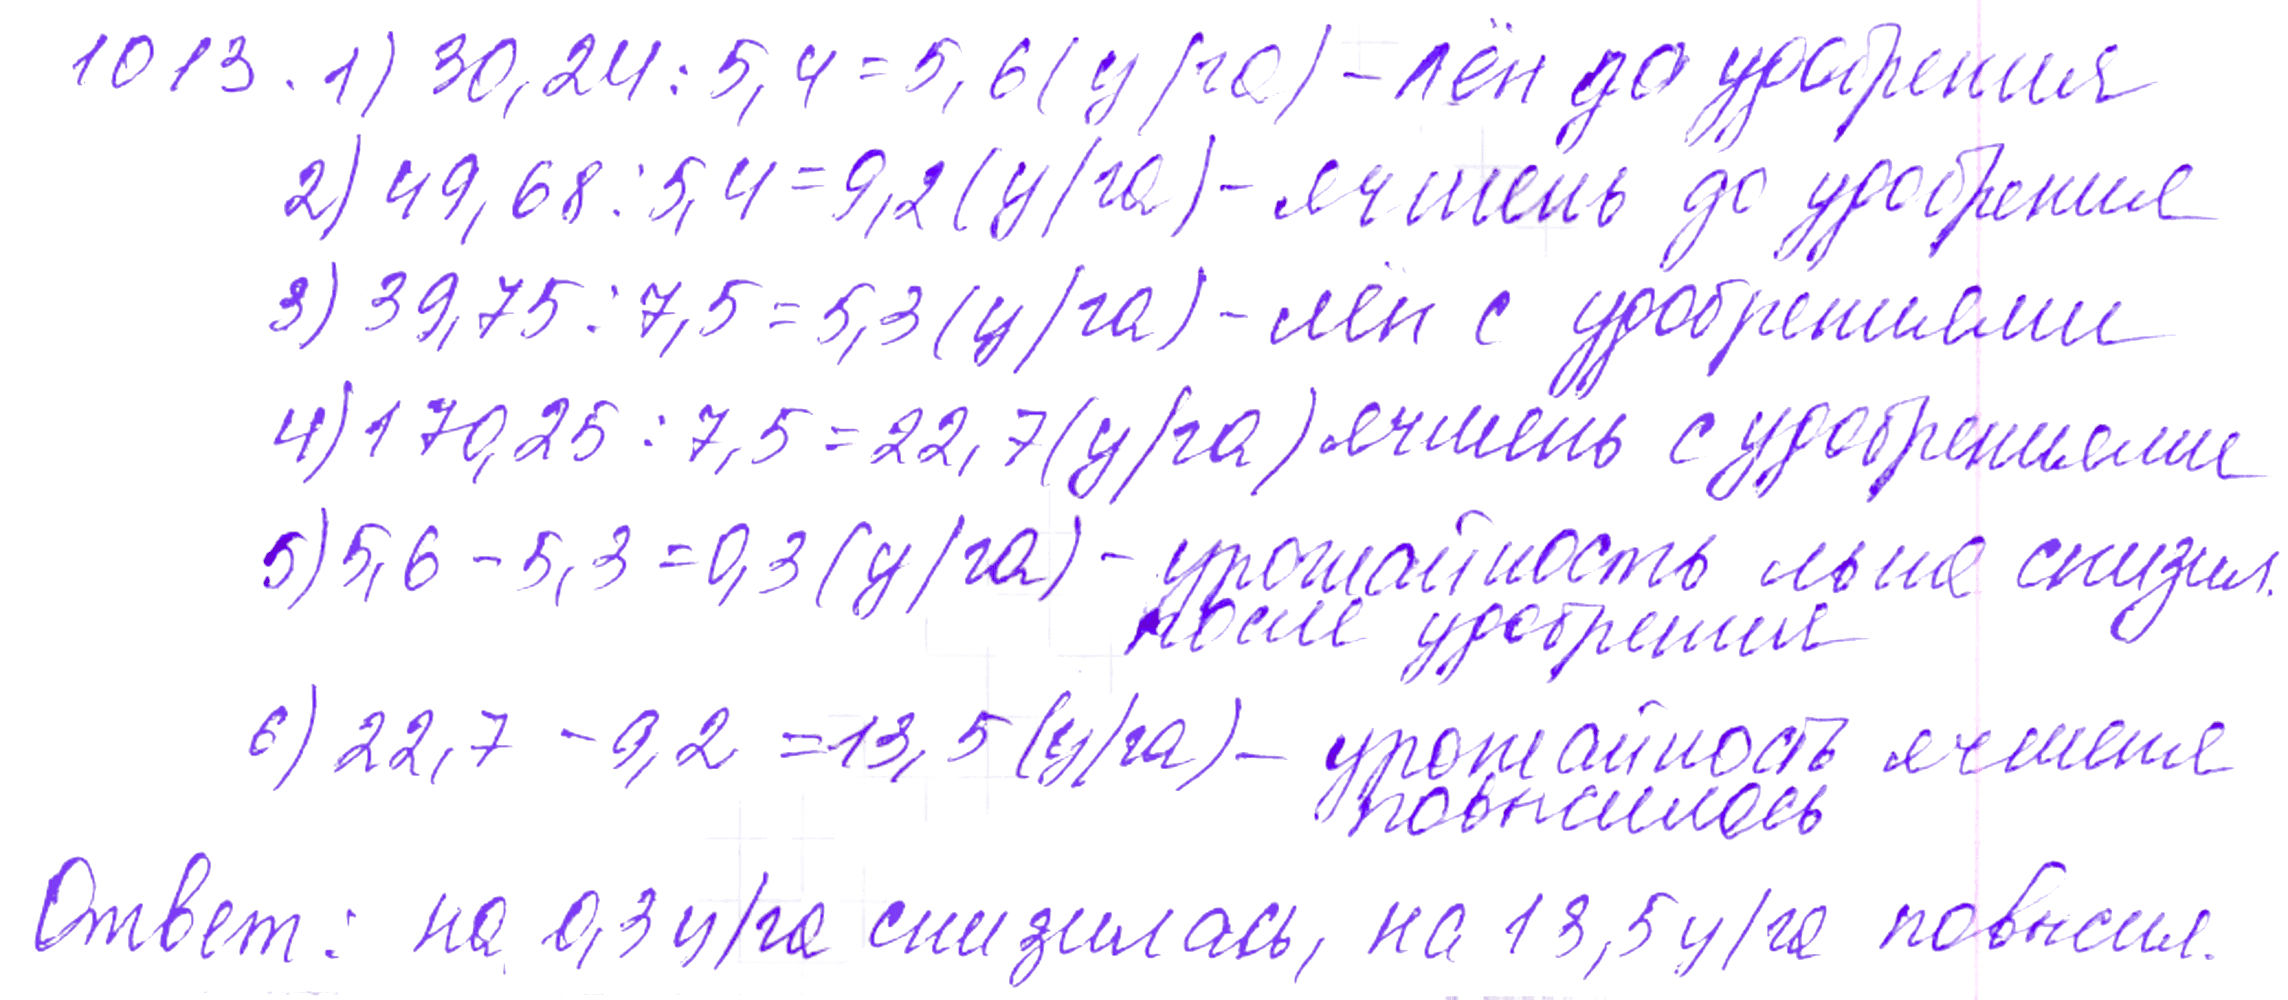 1013. 1) 30,24 : 5,4 = 5,6 (ц/га) - лён до удобрения
2) 49,68 : 5,4 = 9,2 (ц/га) - ячмень до удобрения
3) 39,75 : 7,5 = 5,3 (ц/га) - лён с удобрениями
4) 170,25 : 7,5 = 22,7 (ц/га) ячмень с удобрениями
5) 5,6 - 5,3 = 0,3 (ц/га) - урожайность льна снизил.
после удобрения
6) 22,7 - 9,2 = 13,5 (ц/га) - урожайность ячменя
повысилось
Ответ: на 0,3 ц/га снизилась, на 13,5 ц/га повысил.